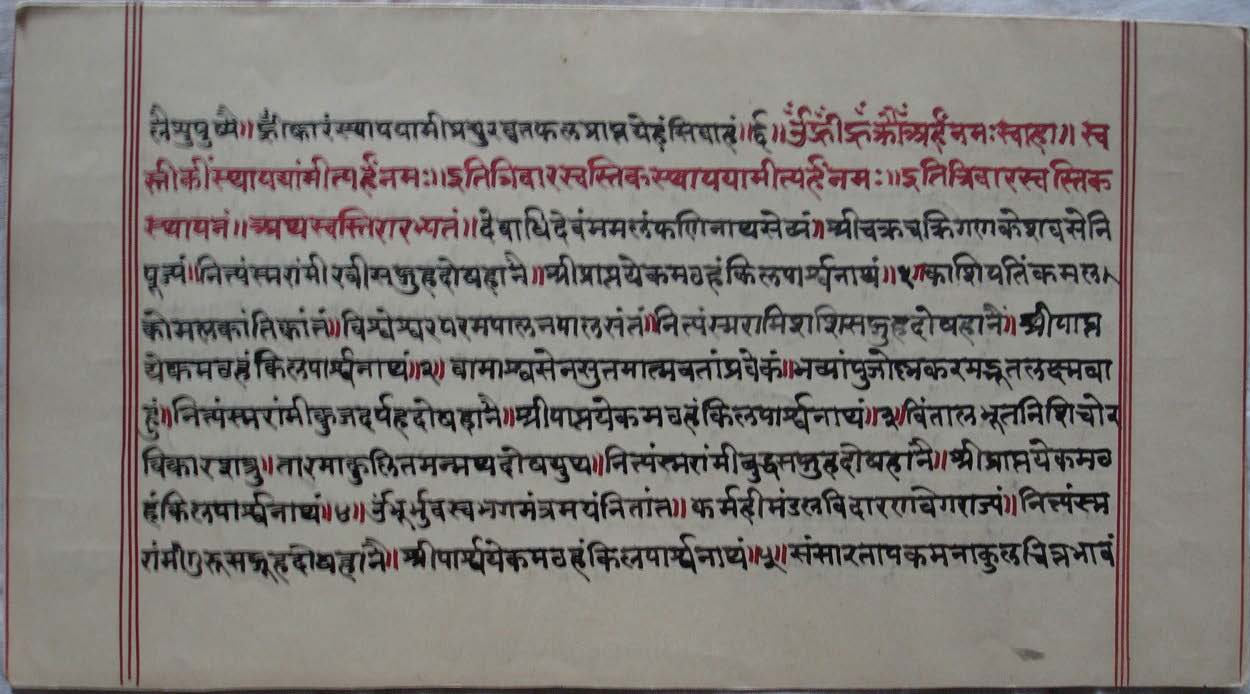 त्नैपुपुष्पै॥ह्रींकारंस्थापयामीप्रचुरघृतफलप्राप्नयेहंसिवाहं॥ई॥ॐह्रीँह्रँक्रौँअर्हंनमःस्वाहा॥स्व
स्तीकींस्थापयांमीत्यर्हंनमः॥इतित्रिवारस्वस्तिकस्थापयामीत्यर्हंनमः॥इतित्रिवारस्वस्तिक
स्थापनं॥अथस्वस्तिरारभ्यतं॥देवाधिदेवंममलंफणिनाथसेव्यं॥श्रीचक्रचक्रिगणकेशवसेनि
पूज्यं॥नित्यंस्मरांमीरवीसत्रुहदोषहानै॥श्रीप्राप्नयेकमठहंकिलपार्श्वनाथं॥१॥काशिपतिंकमल
कोमलकांतिकांतं॥विश्वेश्वरपरमपालनपालसंतं॥नित्यंस्मरामिशशिसत्रुहदोषहानै॥श्रीपाप्न
येकमठहंकिलपार्श्वनाथं॥२॥वामाश्वसेनसुतमात्मवतांप्रवेकं॥भव्यांपुजोत्मकरमद्भूतलक्ष्मवा
हुं॥नित्यंस्मरांमीकुजदर्पहदोषहानै॥श्रीपाप्नयेकमठहंकिलपार्श्वनाथं॥३॥विंतालभूतनिशिचोर
विकारशत्रु॥तारमाकुलितमन्मथदोषपुष्प॥नित्यंस्मरांमीबुद्धसत्रुहदोषहानै॥श्रीप्राप्नयेकमठ
हंकिलपार्श्वनाथं॥४॥ॐभूर्भुवस्वभगमंत्रमयंनितांत॥कर्मद्रीमंडलविदारणवेगराज्यं॥नित्यंस्म
रांमीगुरूसत्रूहदोषहानै॥श्रीपार्श्वयेकमठहंकिलपार्श्वनाथं॥५॥संसारतापकमनाकुलचित्रभावं